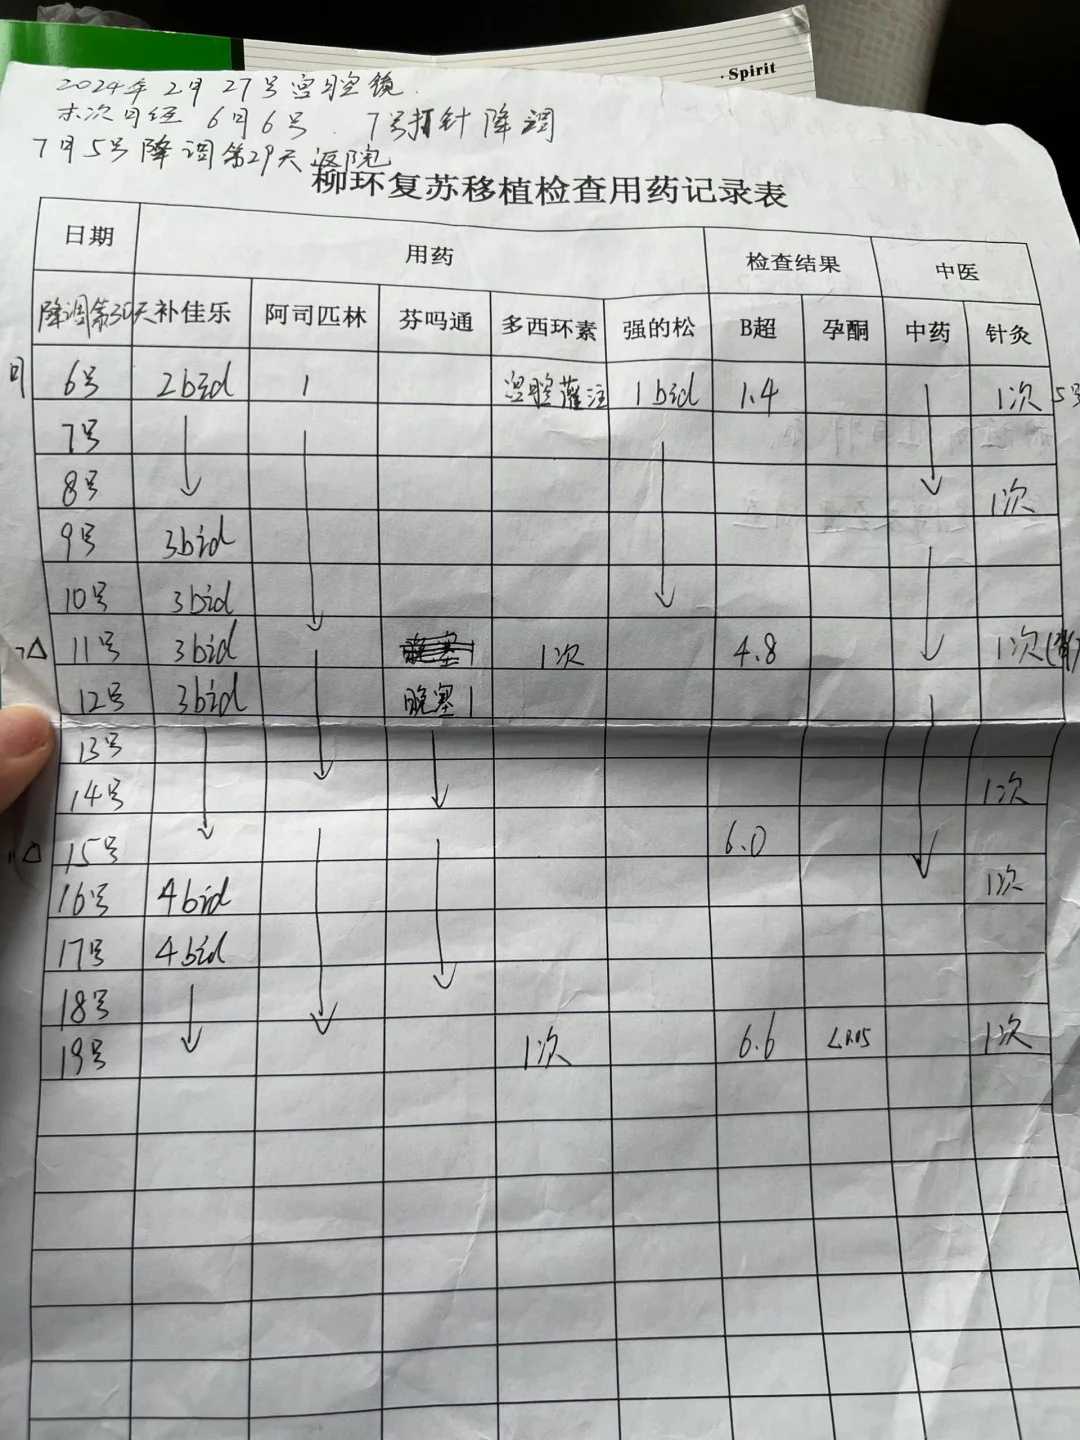 ·Spirit
2024年2月27号宫腔镜.
末次月经 6月6号. 7号打针降调
7月5号降调第29天返院
柳环复苏移植检查用药记录表
日期 用药 检查结果 中医
降调第30天 补佳乐 阿司匹林 芬吗通 多西环素 强的松 B超 孕酮 中药 针灸
6号 2bid 1 宫腔灌注 1bid 1.4 1次 5号
7号
8号 1次
9号 3bid
10号 3bid
11号 3bid 1次 4.8 1次
12号 3bid 晚塞1
13号
14号 1次
15号 6.0
16号 4bid 1次
17号 4bid
18号
19号 1次 6.6 1次